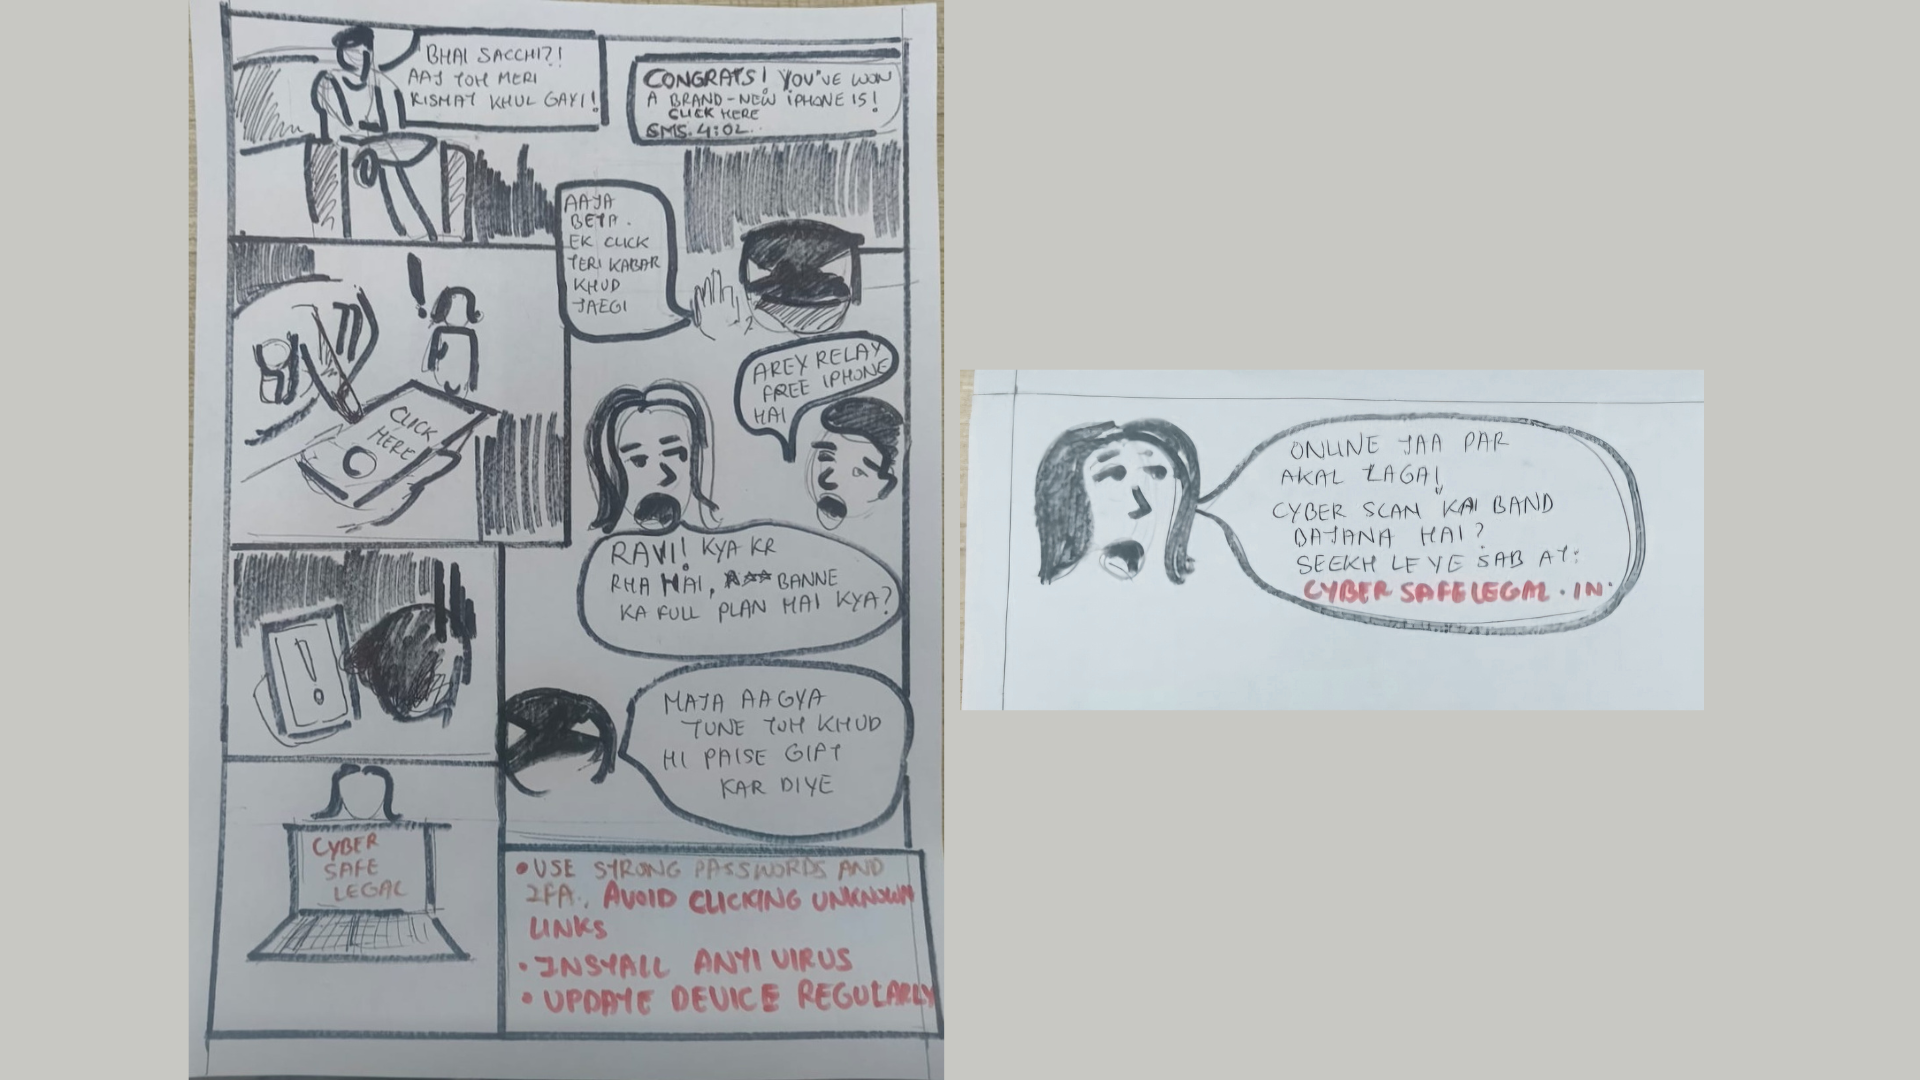 BHAI SACCHI?!
AAJ TOH MERI
KISMAT KHUL GAYI!
CONGRATS! YOU'VE WON
A BRAND-NEW iPHONE 15!
CLICK HERE
SMS. 4:02..
AAJA
BETA.
EK CLICK
TERI KABAR
KHUD
JAEGI
!
CLICK
HERE
AREY RELAY
FREE IPHONE
HAI
RAVI! KYA KR
RHA HAI, BANNE
KA FULL PLAN HAI KYA?
!
MAJA AAGYA
TUNE TOH KHUD
HI PAISE GIFT
KAR DIYE
CYBER
SAFE
LEGAL
• USE STRONG PASSWORDS AND
2FA., AVOID CLICKING UNKNOWN
LINKS
• INSTALL ANTI VIRUS
• UPDATE DEVICE REGULARLY
ONLINE JAA PAR
AKAL LAGA!
CYBER SCAN KAI BAND
BAJANA HAI?
SEEKH LE YE SAB AT:
CYBER SAFE LEGAL.IN.